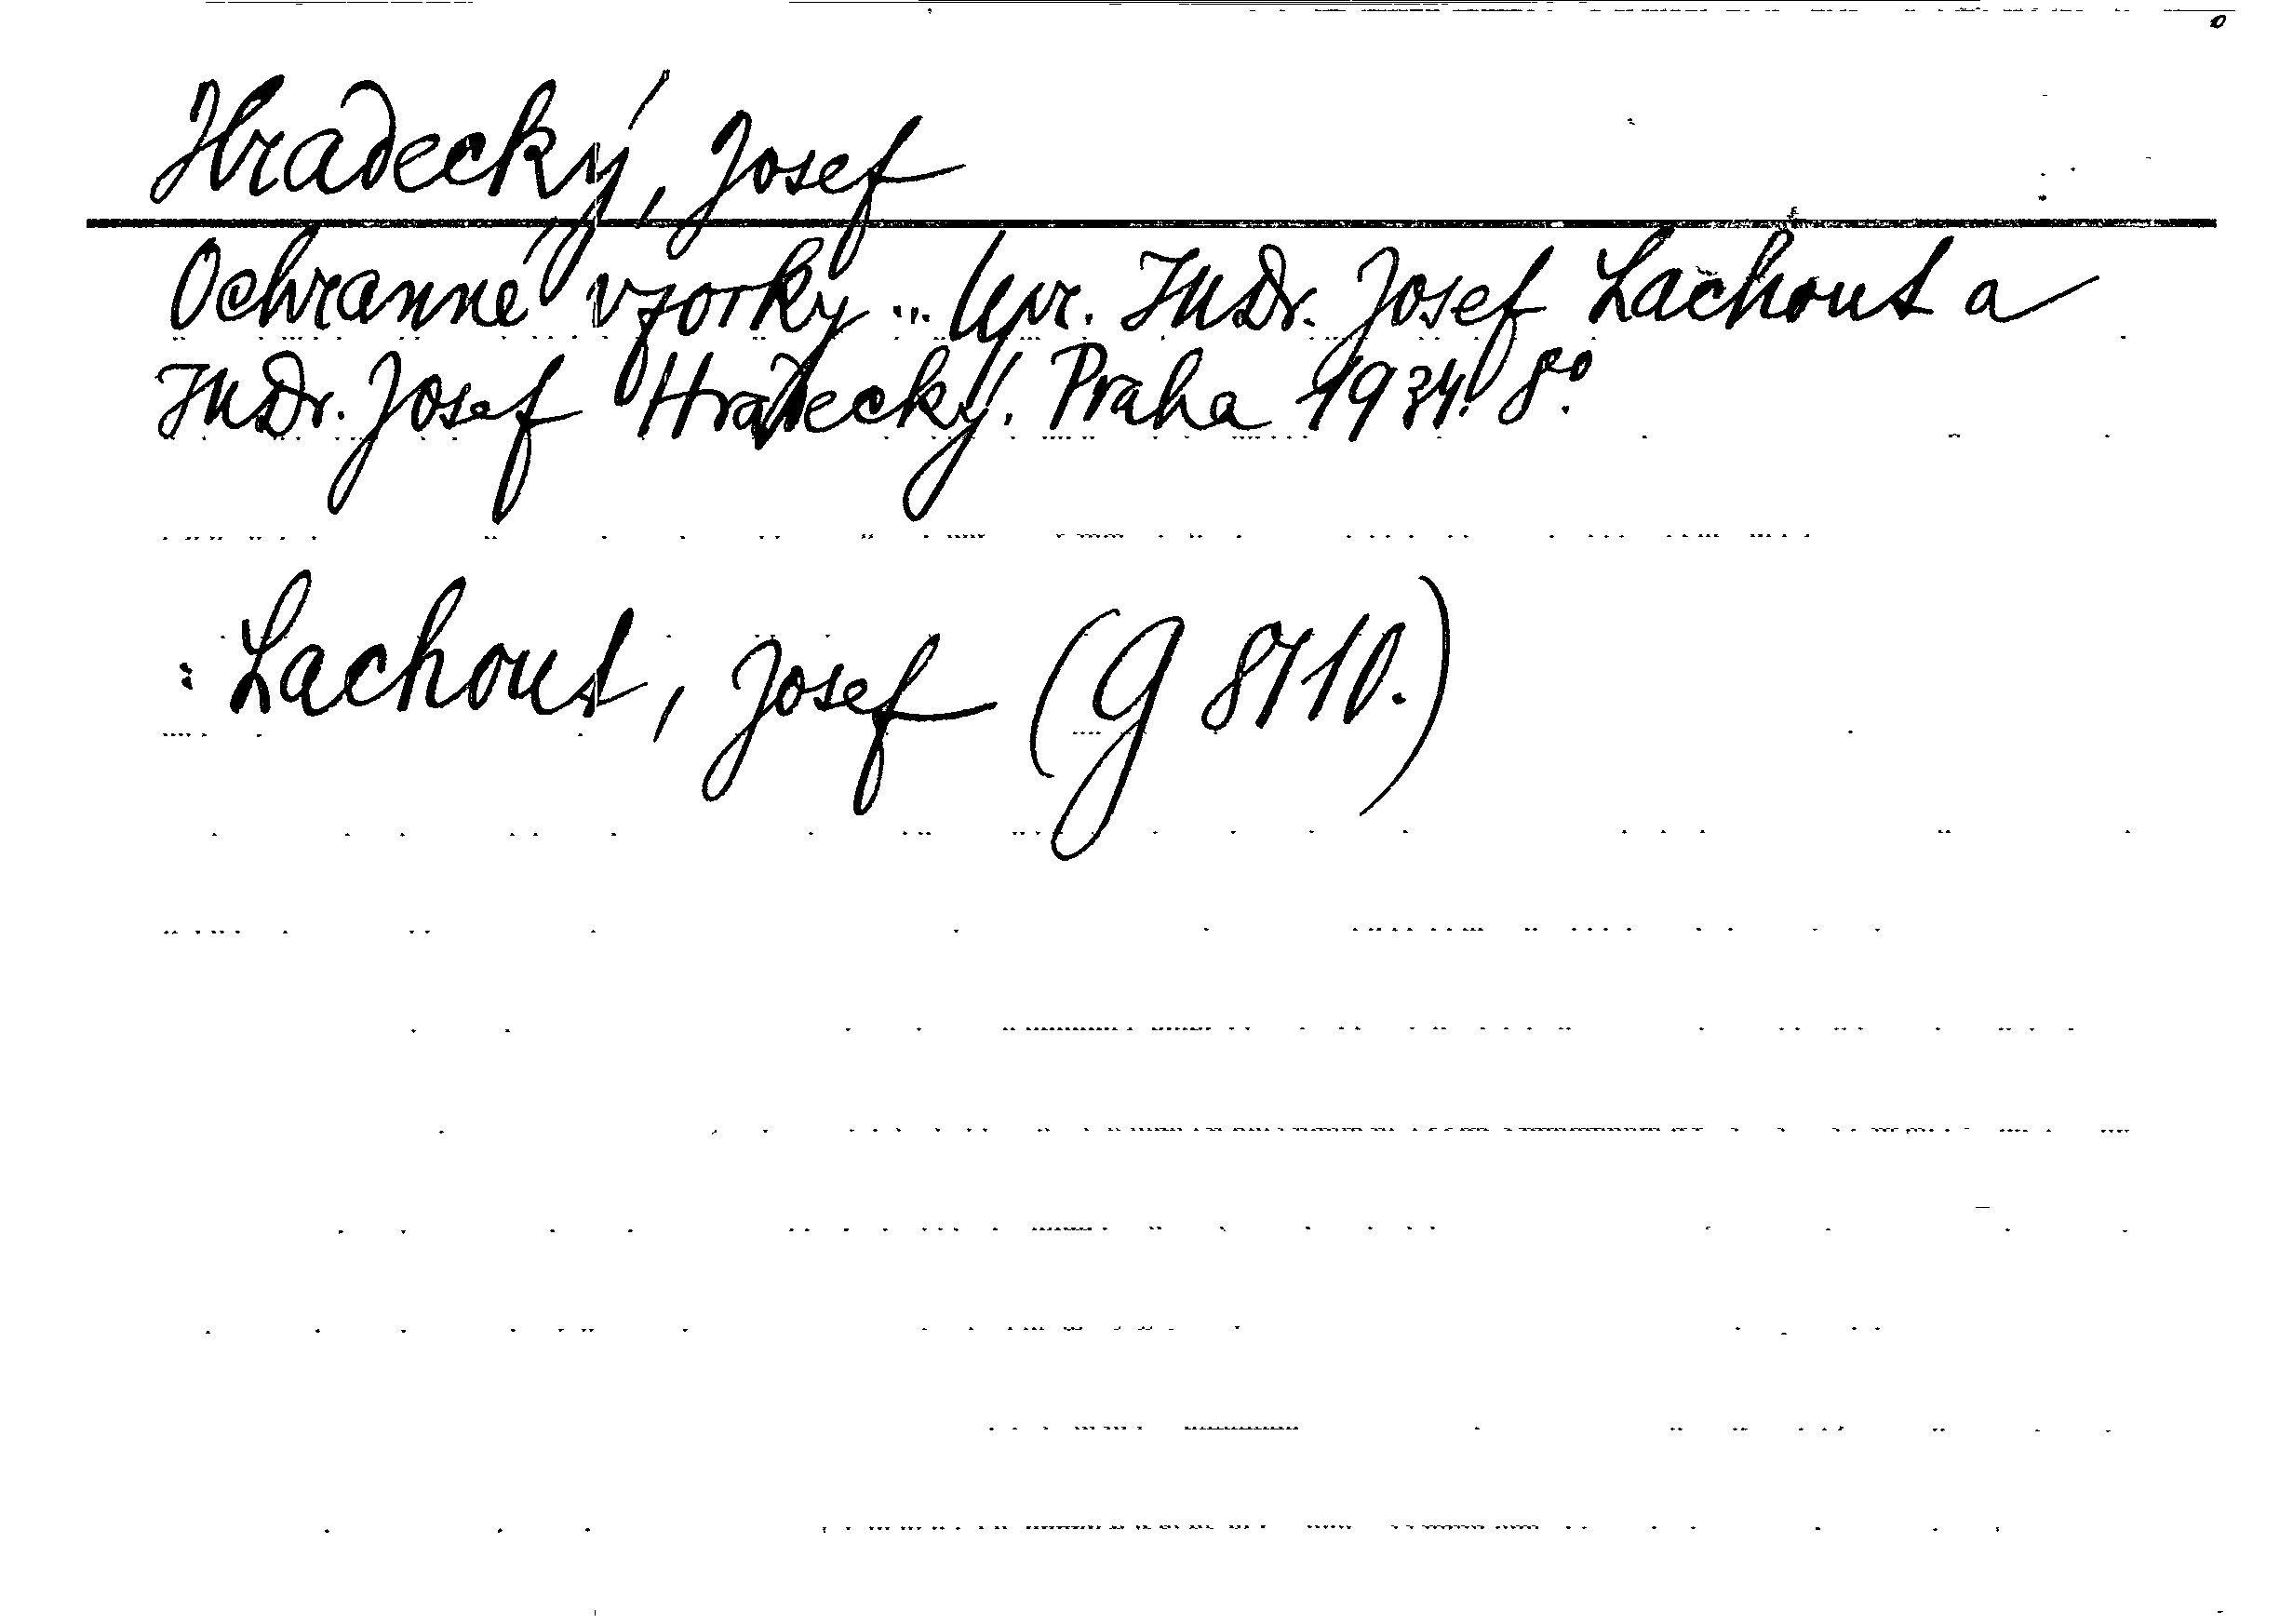 Hradecký, Josef
Ochranné vzorky ... Upr. JUDr. Josef Lachout a
JUDr. Josef Hradecký. Praha 1934. 8°.
: Lachout, Josef (G 8710.)